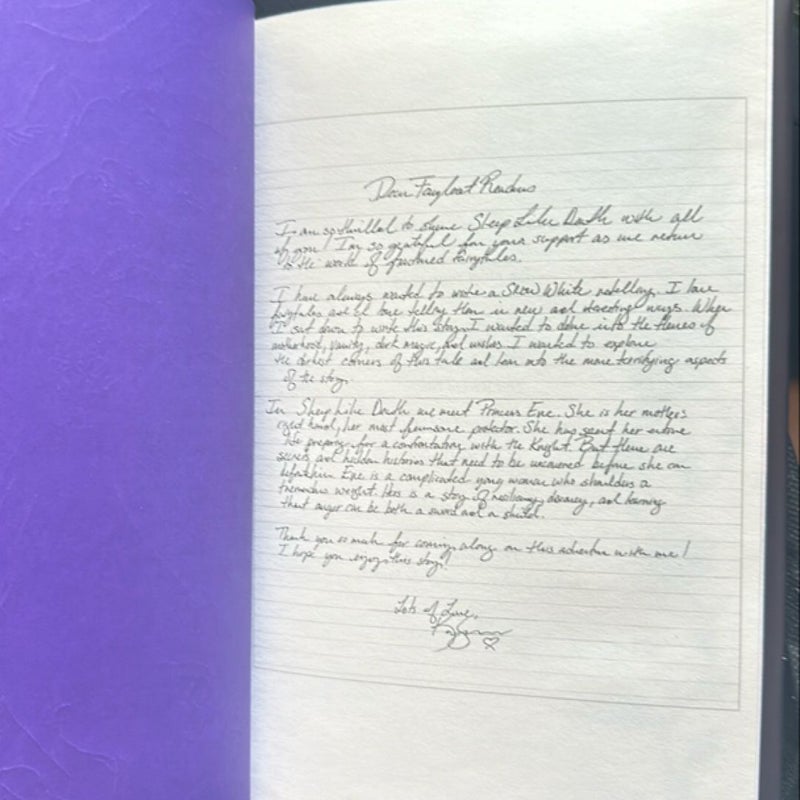 Dear Fairyloot Readers
I am so thrilled to share Sleep Like Death with all
of you! I'm so grateful for your support as we return
to the world of fractured fairytales.
I have always wanted to write a Snow White retelling. I love
fairytales and I love telling them in new and interesting ways. When
I sat down to write this story I wanted to delve into the themes of
motherhood, vanity, dark magic, and wishes. I wanted to explore
the darkest corners of this tale and lean into the more terrifying aspects
of the story.
In Sleep Like Death we meet Princess Eve. She is her mother's
right hand, her most fearsome protector. She has spent her entire
life preparing for a confrontation with the Knight. But there are
secrets and hidden histories that need to be uncovered before she can
Eve is a complicated young woman who shoulders a
tremendous weight. Hers is a story of resiliency, discovery, and learning
that anger can be both a sword and a shield.
Thank you so much for coming along on this adventure with me!
I hope you enjoy this story!
Lots of Love,